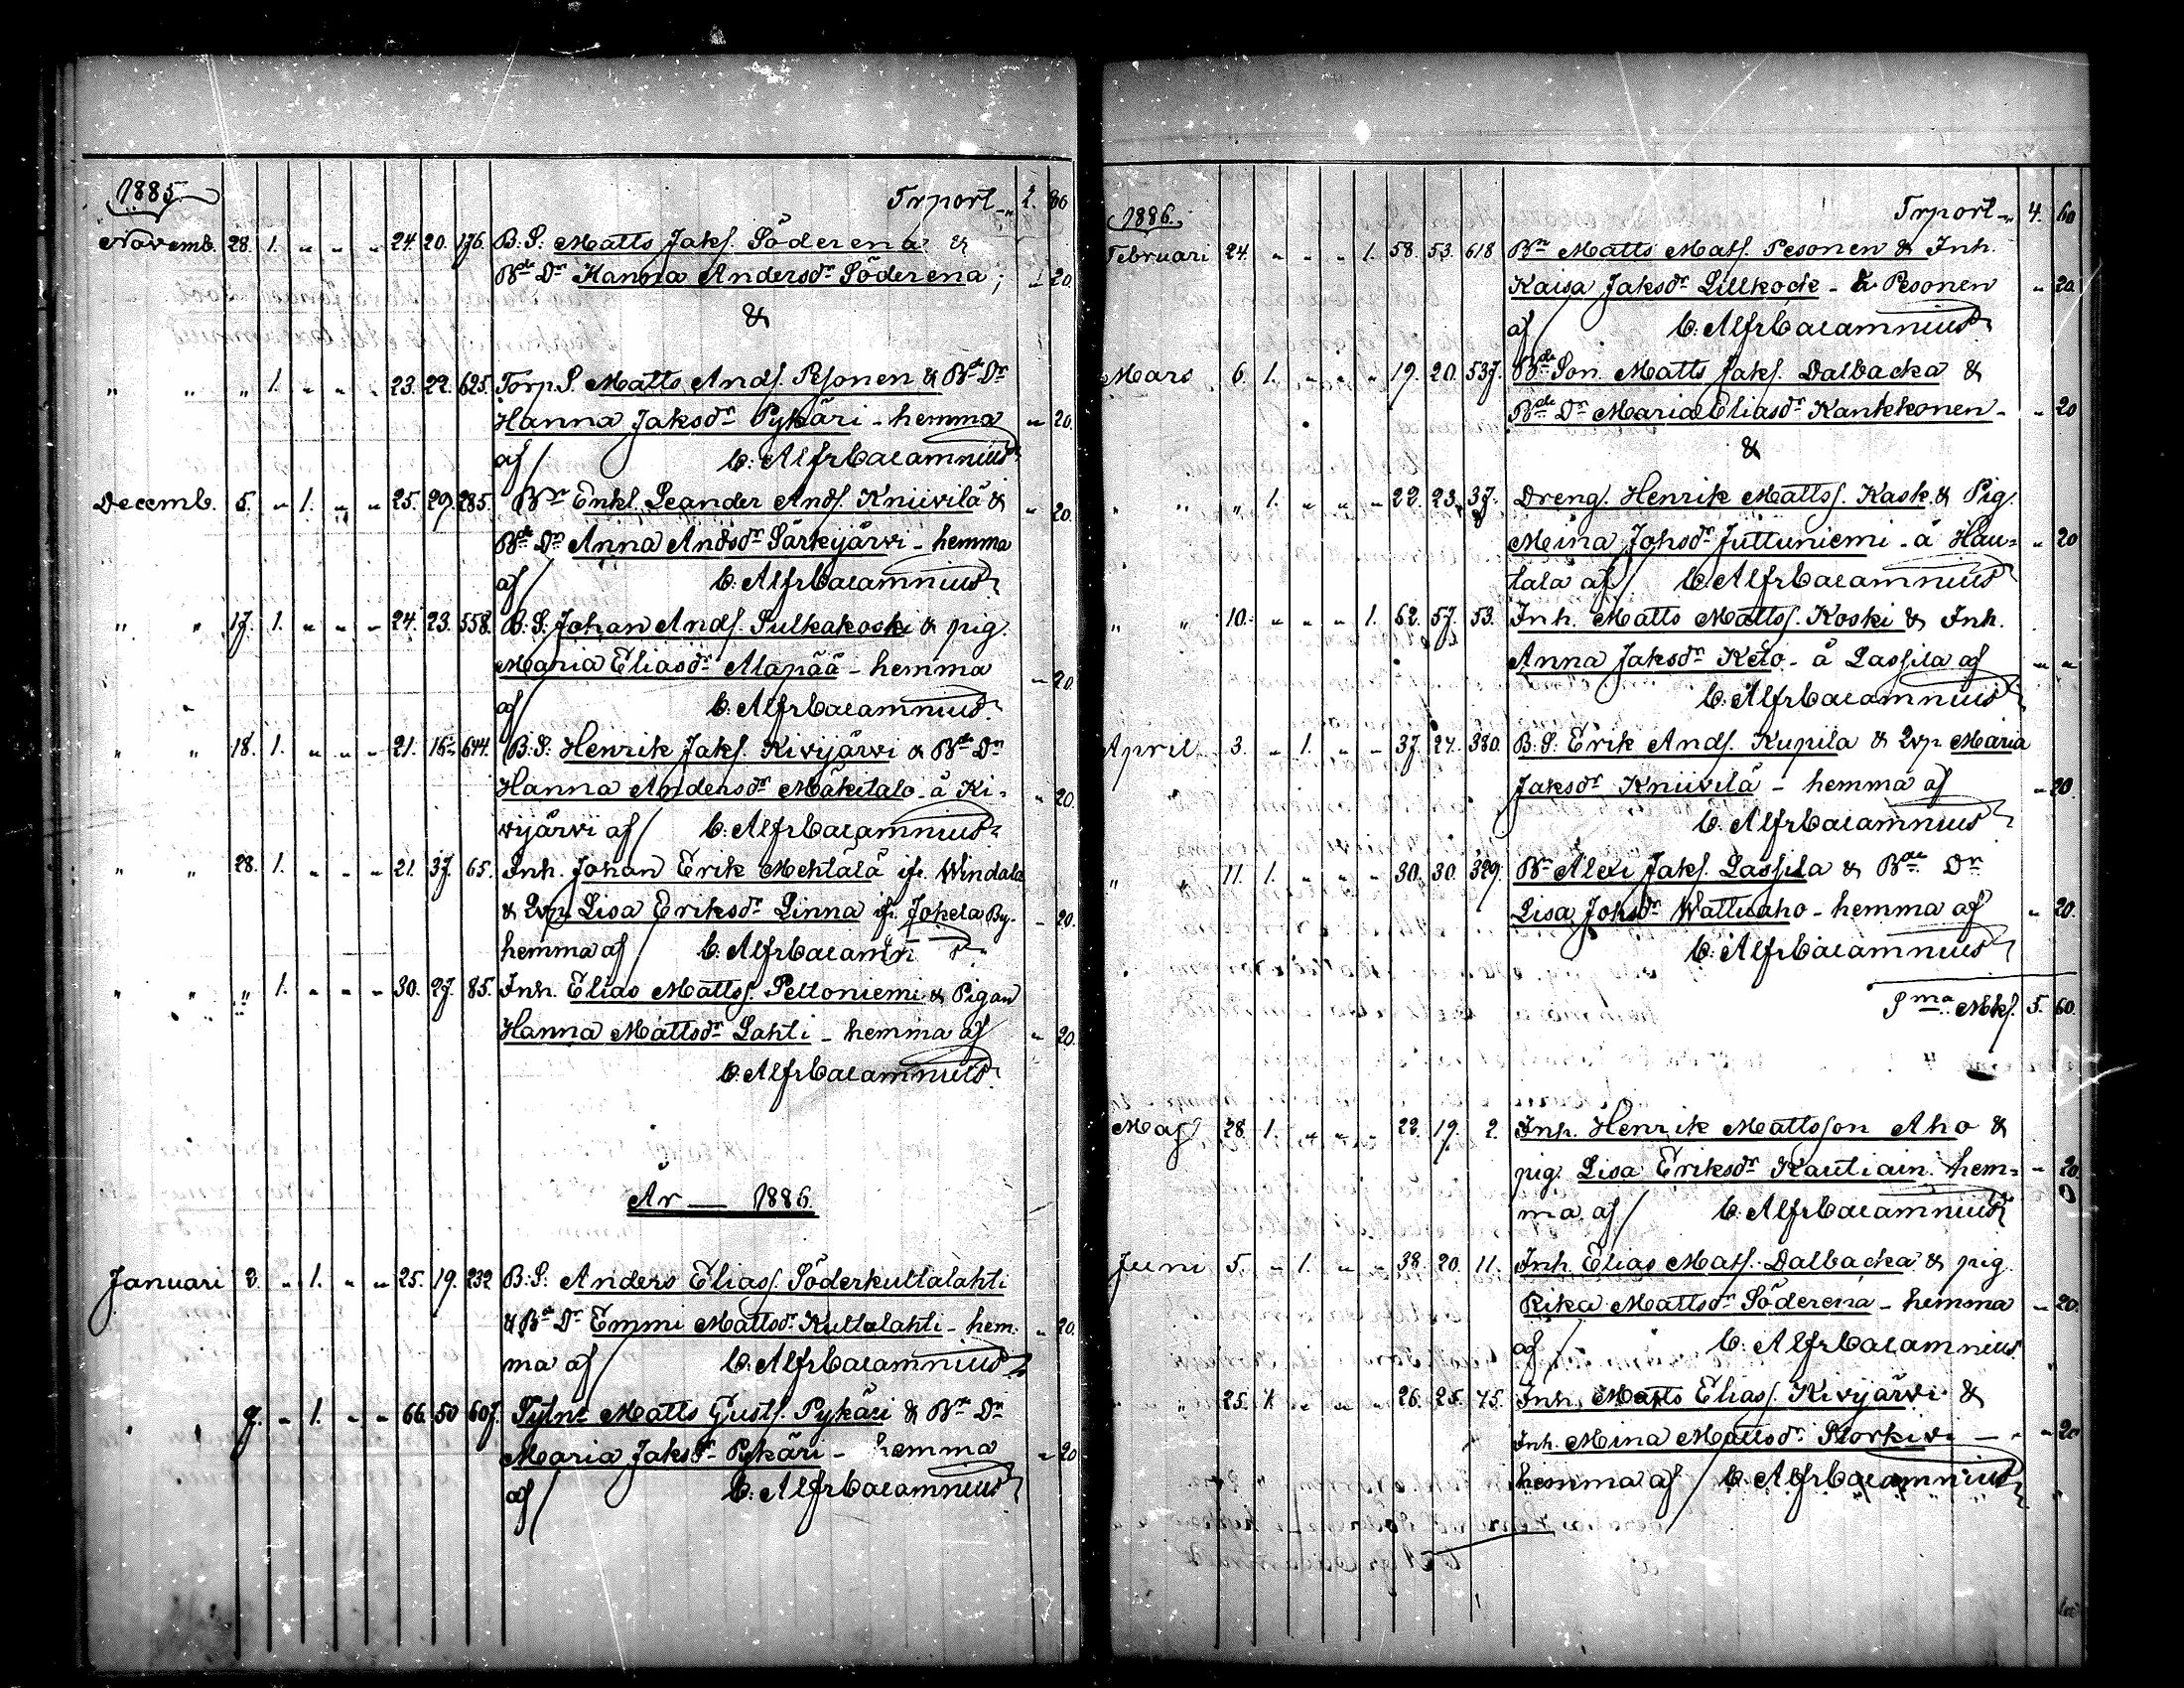 1885.
Trport „ 2. 80
Novemb. 28. 1. „ „ „ 24. 20. 176. B. S: Matts Jaksſ. Söderena &
Bde Dr Hanna Andersdr Söderena; „ 20.
&
„ „ „ 1. „ „ „ 23. 22. 625. Torp. S. Matts Andſ. Pesonen & Bde Dr
Hanna Jaksdr Pykäri - hemma „ 20.
af / C: Alfr Calamnius
Decemb. 5. „ 1. „ „ 25. 29. 285. Bdr Enkl. Leander Andſ. Kniivilä & „ 20.
Bde Dr Anna Andsdr Särkijärvi - hemma
af / C: Alfr Calamnius
„ „ 17. 1. „ „ „ 24. 23. 558. B. S. Johan Andſ. Sulkakoski & pig.
Maria Eliasdr Alapää - hemma „ 20.
af / C: Alfr Calamnius
„ „ 18. 1. „ „ „ 21. 16½ 644. B. S: Henrik Jakſ. Kivijärvi & Bde Dr
Hanna Andersdr Mäkitalo - å Ki- „ 20.
vijärvi af / C: Alfr Calamnius
„ „ 28. 1. „ „ „ 21. 37. 65. Inh. Johan Erik Mehtälä ifr. Windala
& Enp. Lisa Eriksdr Linna ifr. Jokela By- „ 20.
hemma af / C: Alfr Calamn
„ „ „ 1. „ „ „ 30. 27. 85. Inh. Elias Mattsſ. Peltoniemi & Pigan
Hanna Mattsdr Lahti - hemma af „ 20.
C: Alfr Calamnius
År — 1886.
Januari 2. „ 1. „ „ 25. 19. 232 B. S: Anders Eliasſ. Söderkultalahti
& Bde Dr Emmi Mattsdr Kultalahti - hem- „ 20.
ma af / C: Alfr Calamnius
„ 9. „ 1. „ „ 66. 50 607. Sytnr Matts Gustſ. Pykäri & Bde Dr
Maria Jaksdr Pykäri - hemma „ 20
af / C: Alfr Calamnius
1886.
Trport „ 4. 60
Februari 24. „ „ „ 1. 58. 53. 618 Bn Matts Matſ. Pesonen & Inh.
Kaisa Jaksdr Lillkock - å Pesonen „ 20.
af / C: Alfr Calamnius
Mars 6. 1. „ „ „ 19. 20. 537. Bde Son Matts Jakſ. Dalbacka &
Bde Dr Maria Eliasdr Kankkonen - „ 20
&
„ „ „ 1. „ „ „ 22. 23. 37. Dreng. Henrik Mattsſ. Kask & Pig.
Mina Johsdr Juttuniemi - å Hau- „ 20
tala af / C: Alfr Calamnius
„ „ 10. „ „ „ 1. 62. 57. 53. Inh. Matts Mattsſ. Koski & Inh.
Anna Jaksdr Keto - å Lassila af „ „
C: Alfr Calamnius
April 3. „ 1. „ „ 37. 27. 380. B. S: Erik Andſ. Kupila & Enp. Maria
Jaksdr Kniivilä - hemma af „ 20.
C: Alfr Calamnius
„ „ 11. 1. „ „ „ 30. 30. 329. Bn Alexi Jakſ. Lassila & Bde Dr
Lisa Johsdr Wattuaho - hemma af „ 20.
C: Alfr Calamnius
Sma Mkſ. 5. 60.
Maj 28. 1. „ „ „ 22. 19. 2. Inh. Henrik Mattsson Aho &
pig. Lisa Eriksdr Kautiain. hem- „ 20.
ma af / C: Alfr Calamnius
Juni 5. „ 1. „ „ 38. 20. 11. Inh. Elias Matſ. Dalbacka & pig.
Rika Mattsdr Söderena - hemma „ 20.
af / C: Alfr Calamnius
„ „ 25. 1. „ „ „ 26. 25. 75. Inh. Matts Eliasſ. Kivijärvi &
Inh. Mina Mattsdr Storkivi - „ 20
hemma af / C: Alfr Calamnius